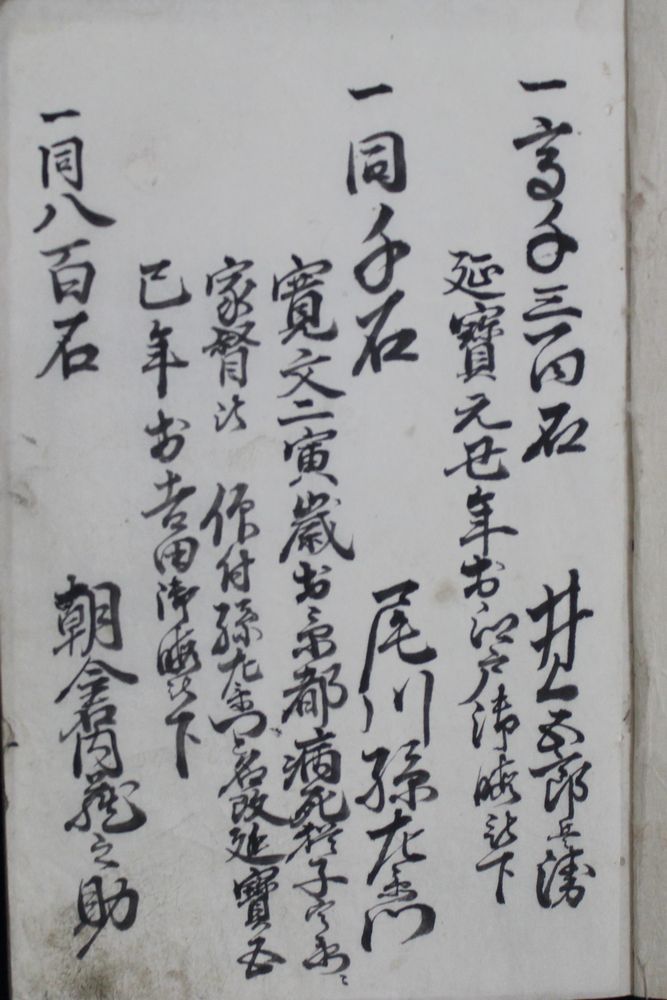 一高千三百石
井上五郎兵衛
延寶元丑年於江戸御暇被下
一同千石
尾川孫左衛門
寛文二寅歳於京都病死猶子
家督被 仰付孫左衛門名改延寶五
巳年於吉田御暇被下
一同八百石
朝倉内蔵之助